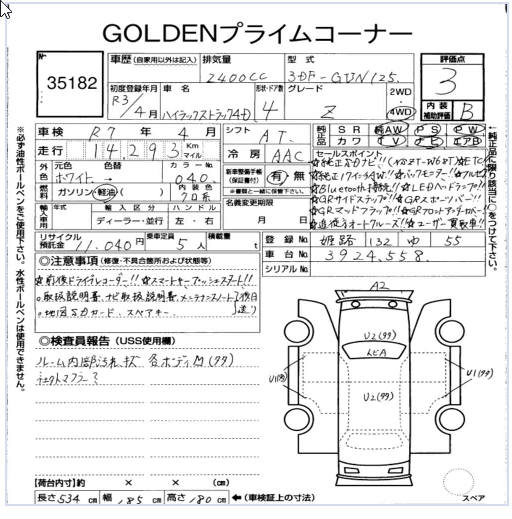 GOLDENプライムコーナー
No. 35182
車歴 (自家用以外は記入) 排気量 2400CC 型式 3DF-GUN125. 評価点 3
初度登録年月 R3/4月 車名 ハイラックストラック4D 形状・ドア数 4 グレード Z 2WD 4WD 内装補助評価 B
車検 R7年4月 シフト AT. 純正品 SR AW PS PW
カワ TV ナビ エアB
走行 14,293 Km マイル 冷房 AAC セールスポイント
外色 元色 ホワイト 色替 → カラーNo. 040
燃料 ガソリン・軽油( ) 内装色 クロ系
新車整備手帳(保証書付) 有・無
※書類と一緒に保管下さい。
☆Bluetooth接続!! ☆LEDヘッドランプ!!
輸入車用 年式 輸入区分 ディーラー・並行 ハンドル 左・右
名義変更期限 月 日
リサイクル預託金 11,040円 乗車定員 5人 積載量 t
登録No. 姫路 132 ゆ 55
車台No. 3924558.
シリアルNo.
◎注意事項 (修復・不具合箇所および状態等)
☆前後ドライブレコーダー!! ☆スマートキープッシュスタート!!
。取扱説明書、ナビ取扱説明書、メンテナンスノート後日送り
。地図SDカード、スペアキー
◎検査員報告 (USS使用欄)
ルーム内部汚れ、キズ 各ボディ凹(99)
A2
U2(99)
トビA
U1(99)
U1(99)
U2(99)
【荷台内寸】約 × × (cm)
長さ 534 cm 幅 185 cm 高さ 180 cm ←(車検証上の寸法)
スペア
※必ず油性ボールペンをご使用下さい。水性ボールペンは使用できません。
←純正品に限り該当に○をつけて下さい。